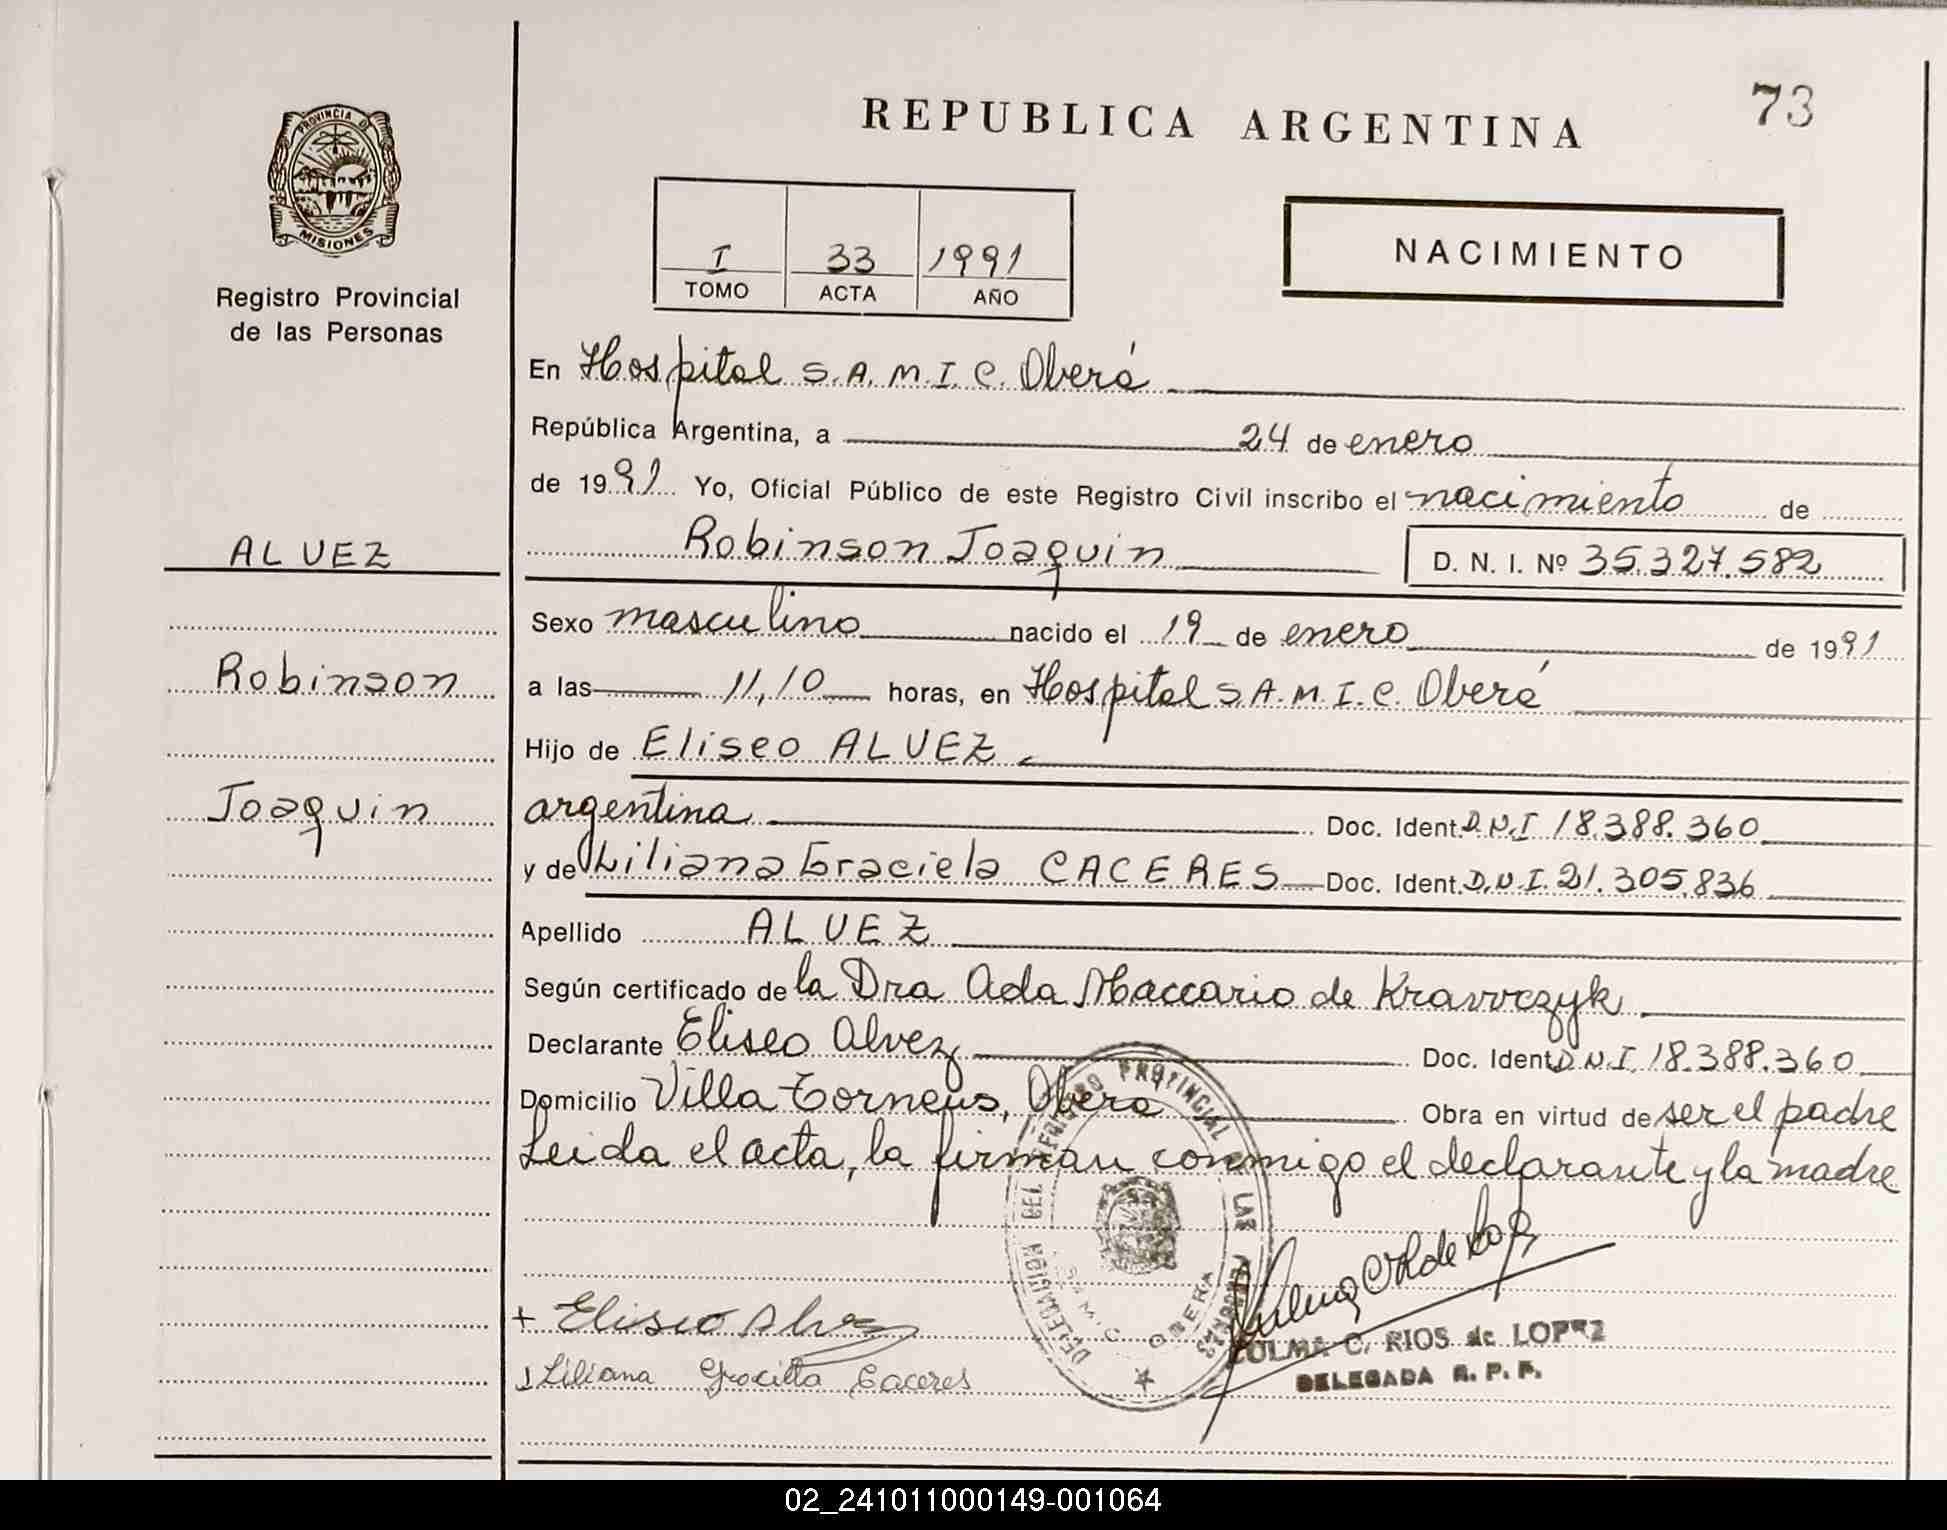 73
REPUBLICA ARGENTINA
PROVINCIA DE
MISIONES
Registro Provincial
de las Personas
I 33 1991
TOMO ACTA AÑO
NACIMIENTO
En Hospital S.A.M.I.C. Oberá
República Argentina, a 24 de enero
de 1991 Yo, Oficial Público de este Registro Civil inscribo el nacimiento de
Robinson Joaquin D. N. I. Nº 35.327.582
ALVEZ
Robinson
Joaquin
Sexo masculino nacido el 19 de enero de 1991
a las 11,10 horas, en Hospital S.A.M.I.C. Oberá
Hijo de Eliseo ALVEZ
argentina Doc. Ident. D.N.I 18.388.360
y de Liliana Graciela CACERES Doc. Ident. D.N.I. 21.305.836
Apellido ALVEZ
Según certificado de la Dra Ada Maccario de Kravvczyk
Declarante Eliseo Alvez Doc. Ident. D.N.I. 18.388.360
Domicilio Villa Torneus, Oberá Obra en virtud de ser el padre
Leida el acta, la firman conmigo el declarante y la madre
DELEGACION DEL REGISTRO PROVINCIAL DE LAS PERSONAS
SAMIC OBERA
Eliseo Alvez
Liliana Graciela Caceres
ZULMA C. RIOS de LOPEZ
DELEGADA R. P. P.
02_241011000149-001064